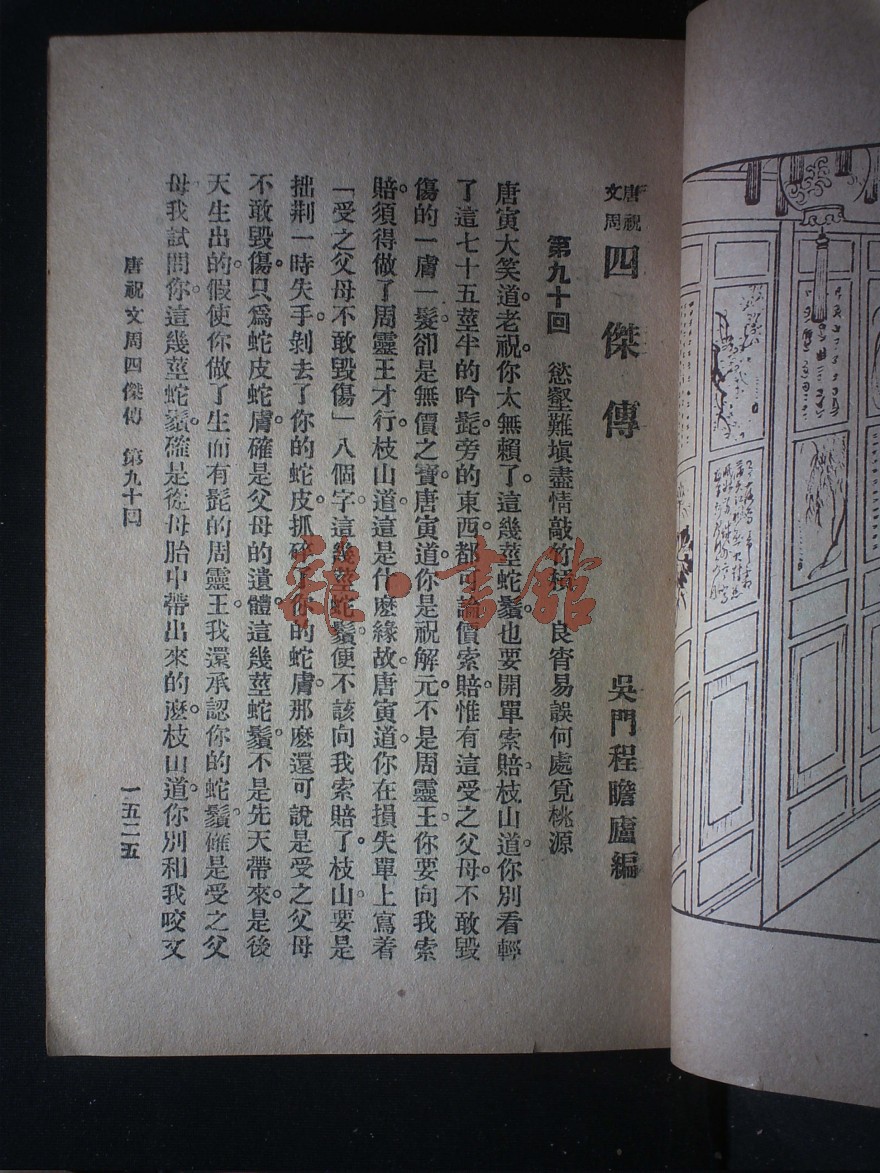 唐祝文周 四傑傳
吳門程瞻廬編
第九十回 慾壑難塡盡情敲竹槓 良宵易誤何處覓桃源
唐寅大笑道。老祝。你太無賴了。這幾莖蛇鬚。也要開單索賠。枝山道。你別看輕
了這七十五莖半的吟髭。旁的東西。都可論價索賠。惟有這受之父母。不敢毀
傷的一膚一髮。卻是無價之寶。唐寅道。你是祝解元。不是周靈王。你要向我索
賠。須得做了周靈王才行。枝山道。這是什麽緣故。唐寅道。你在損失單上寫着
「受之父母不敢毀傷」八個字。這幾莖蛇鬚。便不該向我索賠了。枝山。要是
拙荆一時失手。剝去了你的蛇皮。抓碎了你的蛇膚。那麽還可說是受之父母
不敢毀傷。只爲蛇皮蛇膚。確是父母的遺體。這幾莖蛇鬚。不是先天帶來。是後
天生出的。假使你做了生而有髭的周靈王。我還承認你的蛇鬚。確是受之父
母。我試問你。這幾莖蛇鬚。確是從母胎中帶出來的麽。枝山道。你別和我咬文
唐祝文周四傑傳 第九十回
一五二五
雜·書館